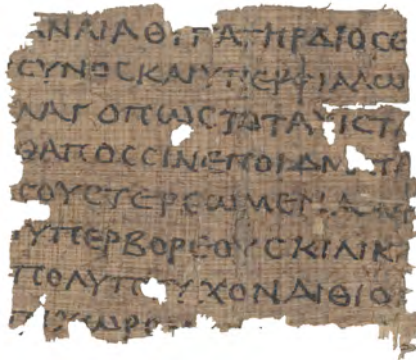 ΑΝΑΙΑΘΥΓΑΤΗΡΔΙΟϹΕ
ϹΥΝΟϹΚΑΙΥΠΕΡΦΙΑΛΩ
ΛΑΓΟΠΩϹΤΟΤΑΧΙϹΤ
ΘΑΠΟϹϹΙΝΕΠΟΙΔΜΑΤΑ
ΤΟΥϹΤΕΡΕΩΜΕΝΑ
ΥΠΕΡΒΟΡΕΟΥϹΚΙΛΙΚ
ΠΟΛΥΠΤΥΧΟΝΑΙΘΙΟ
ΧΩΡ